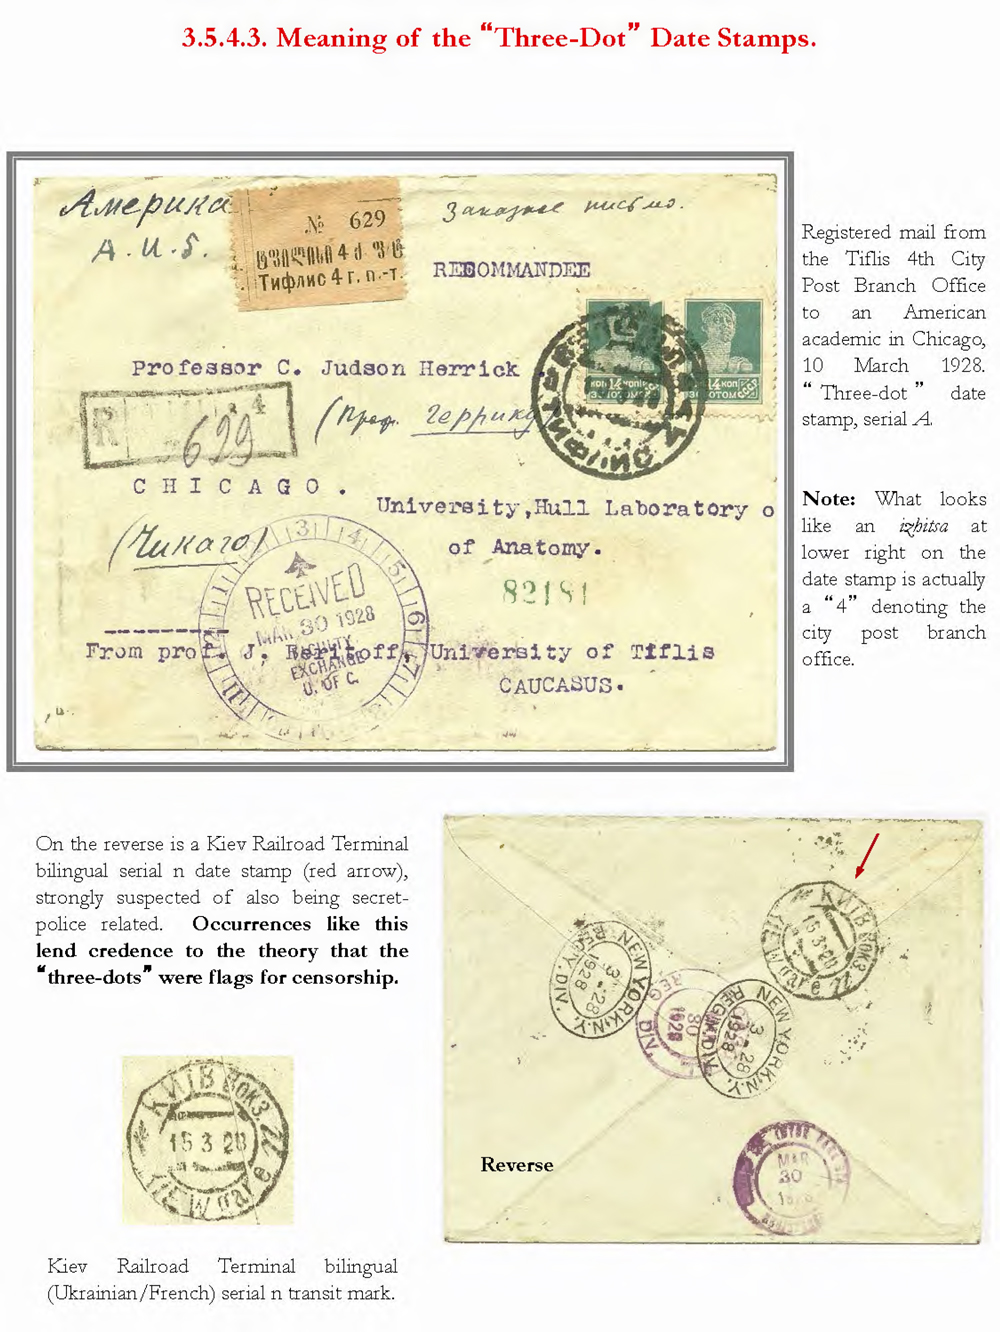 3.5.4.3. Meaning of the “Three-Dot” Date Stamps.
Америка
А.И.S.
№ 629
ტფილისი 4 ქ. ფ.ტ.
Тифлис 4 г. п.-т.
Заказное письмо.
RECOMMANDEE
Professor C. Judson Herrick
(Проф. Геррику
R
4
629
КОП 14 КОП
ЗОЛОТОМ
14 КОП
ЗОЛОТОМ
СССР
CHICAGO.
University,Hull Laboratory o
of Anatomy.
(Чикаго)
82181
RECEIVED
MAR 30 1928
FACULTY
EXCHANGE
U. OF C.
From prof. J. Beritoff, University of Tiflis
CAUCASUS.
Registered mail from
the Tiflis 4th City
Post Branch Office
to an American
academic in Chicago,
10 March 1928.
“Three-dot” date
stamp, serial A.
Note: What looks
like an izhitsa at
lower right on the
date stamp is actually
a “4” denoting the
city post branch
office.
On the reverse is a Kiev Railroad Terminal
bilingual serial n date stamp (red arrow),
strongly suspected of also being secret-
police related. Occurrences like this
lend credence to the theory that the
“three-dots” were flags for censorship.
КИЇВ ВОКЗ.
15 3 28
КИЇВ ВОКЗ.
15 3 28
NEW YORK, N.Y.
3-28
1928
REG'Y. DIV.
NEW YORK, N.Y.
3-28
1928
REG'Y. DIV.
30
1928
MAR
30
Reverse
Kiev Railroad Terminal bilingual
(Ukrainian/French) serial n transit mark.